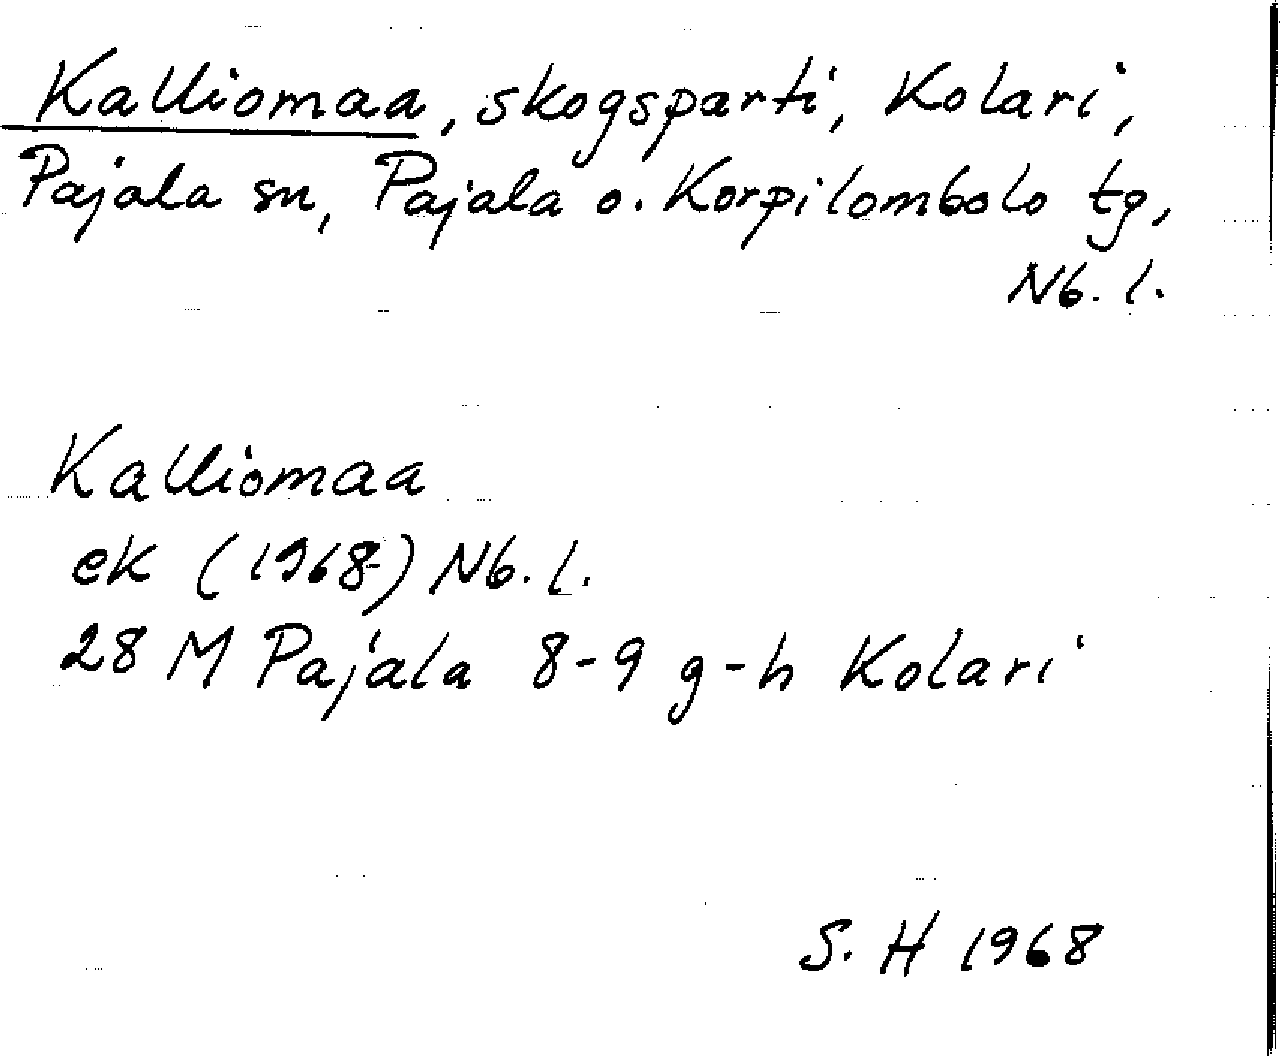 Kalliomaa, skogsparti, Kolari,
Pajala sn, Pajala o. Korpilombolo tg,
Nb. l.
Kalliomaa
ek (1968) Nb. l.
28 M Pajala 8-9 g-h Kolari
S. H 1968